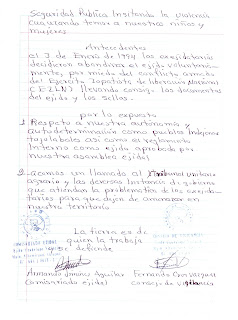 Seguridad Publica incitando la violencia
causando temor a nuestros niños y
mujeres
Antecedentes
el 3 de Enero de 1994 los exejidatarios
decidieron abandonar el ejido voluntaria-
mente, por miedo del conflicto armado
del Ejercito Zapatista de liberacion Nacional
(EZLN) llevando consigo los documentos
del ejido y los sellos.
por lo expuesto
1 Respeto a nuestra autonomia y
autodeterminación como pueblos Indigenas
tojolabales asi como el reglamento
Interno como ejido aprobado por
nuestra asamblea ejidal
2. acemos un llamado al tribunal unitario
agrario y las diversas Instancias de gobierno
que atiendan la problematica de los exejida-
tarios para que dejen de amenazar en
nuestro territorio
La tierra es de
quien la trabaja
Se defiende
Armando Jiménez Aguilar Fernando Cruz Vazquez
Comisariado ejidal Consejo de vigilancia